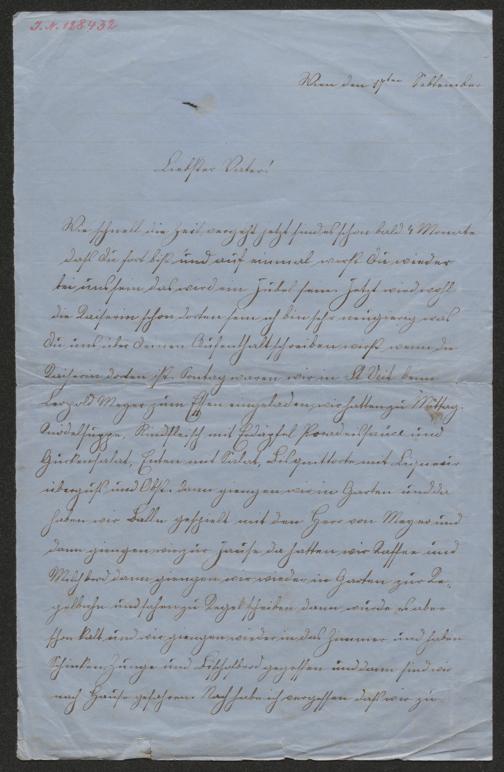 I.N. 128432
Wien den 17ten September
Liebster Vater!
Wie schnell die Zeit vergeht jetzt sind es schon bald 4 Monate
daß du fort bist und auf einmal wirst du wieder
bei uns sein das wird ein Jubel sein. Jetzt wird wohl
die Kaiserin schon dorten sein ich bin sehr neugierig was
du uns über deinen Aufenthalt schreiben wirst wenn die
Kaiserin dorten ist. Sontag waren wir in St Veit beim
Leopold Mayer zum Essen eingeladen, wir hatten zu Mittag
Knödelsuppe, Rindfleisch mit Erdäpfel Paradeissauce und
Gurkensalat, Enten mit Salat, Bisquittorte mit Liqueur
überguß und Obst. dann giengen wir in Garten und da
haben wir Balln gespielt mit den Herr von Mayer und
dann giengen wir zur Jause da hatten wir Kaffee und
Milchbrod dann giengen wir wieder in Garten zur Ke-
gelbahn und sahen zu Kegelscheiben dann wurde es aber
schon kalt und wir giengen wieder in das Zimmer und haben
Schinken Zunge und gegessen und dann sind wir
nach Hause gefahren. habe ich vergessen daß wir zu